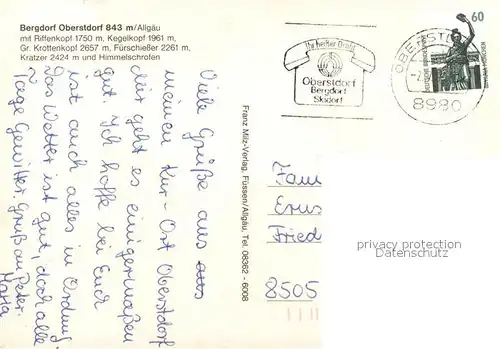 Bergdorf Oberstdorf 843 m/Allgäu
mit Riffenkopf 1750 m, Kegelkopf 1961 m,
Gr. Krottenkopf 2657 m, Fürschießer 2261 m,
Kratzer 2424 m und Himmelschrofen
Viele Grüße aus
meinem Kur-Ort Oberstdorf
mir geht es einigermaßen
gut. Ich hoffe bei Euch
ist auch alles in Ordnung.
Das Wetter ist gut, doch alle
Tage Gewitter Gruß an Peter.
Franz Milz-Verlag, Füssen/Allgäu, Tel. 08362 - 6008
Ihr heißer Draht
Oberstdorf
Bergdorf
Skidorf
OBERSTDORF
8980
60
Fam
Erns
Fried
8505
privacy protection
Datenschutz